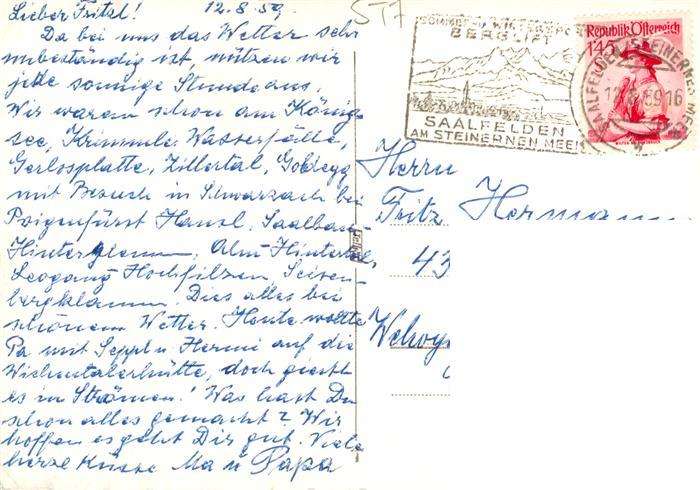 Lieber Fritzl! 12.8.59.
Da bei uns das Wetter sehr
unbeständig ist, nützen wir
jede sonnige Stunde aus.
Wir waren schon am König-
see, Krimmler Wasserfälle,
Gerlosplatte, Zillertal, Goldegg
mit Besuch in Schwarzach bei
Hansl. Saalbach
Hinterglemm, Alm-Hintertal,
Leogang Hochfilzen, Seisen-
bergklamm. Dies alles bei
schönem Wetter. Heute wollte
Pa mit Seppl u Hermi auf die
Wiechentalerhütte, doch giesst
es in Strömen! Was hast Du
schon alles gemacht? Wir
hoffen es geht Dir gut. Viele
herzl Küsse Ma u Papa
ST7
SOMMER- U. WINTERSPORT
BERGLIFT
SAALFELDEN
AM STEINERNEN MEER
Republik Österreich
1.45
Herrn
Fritz Hermann
43